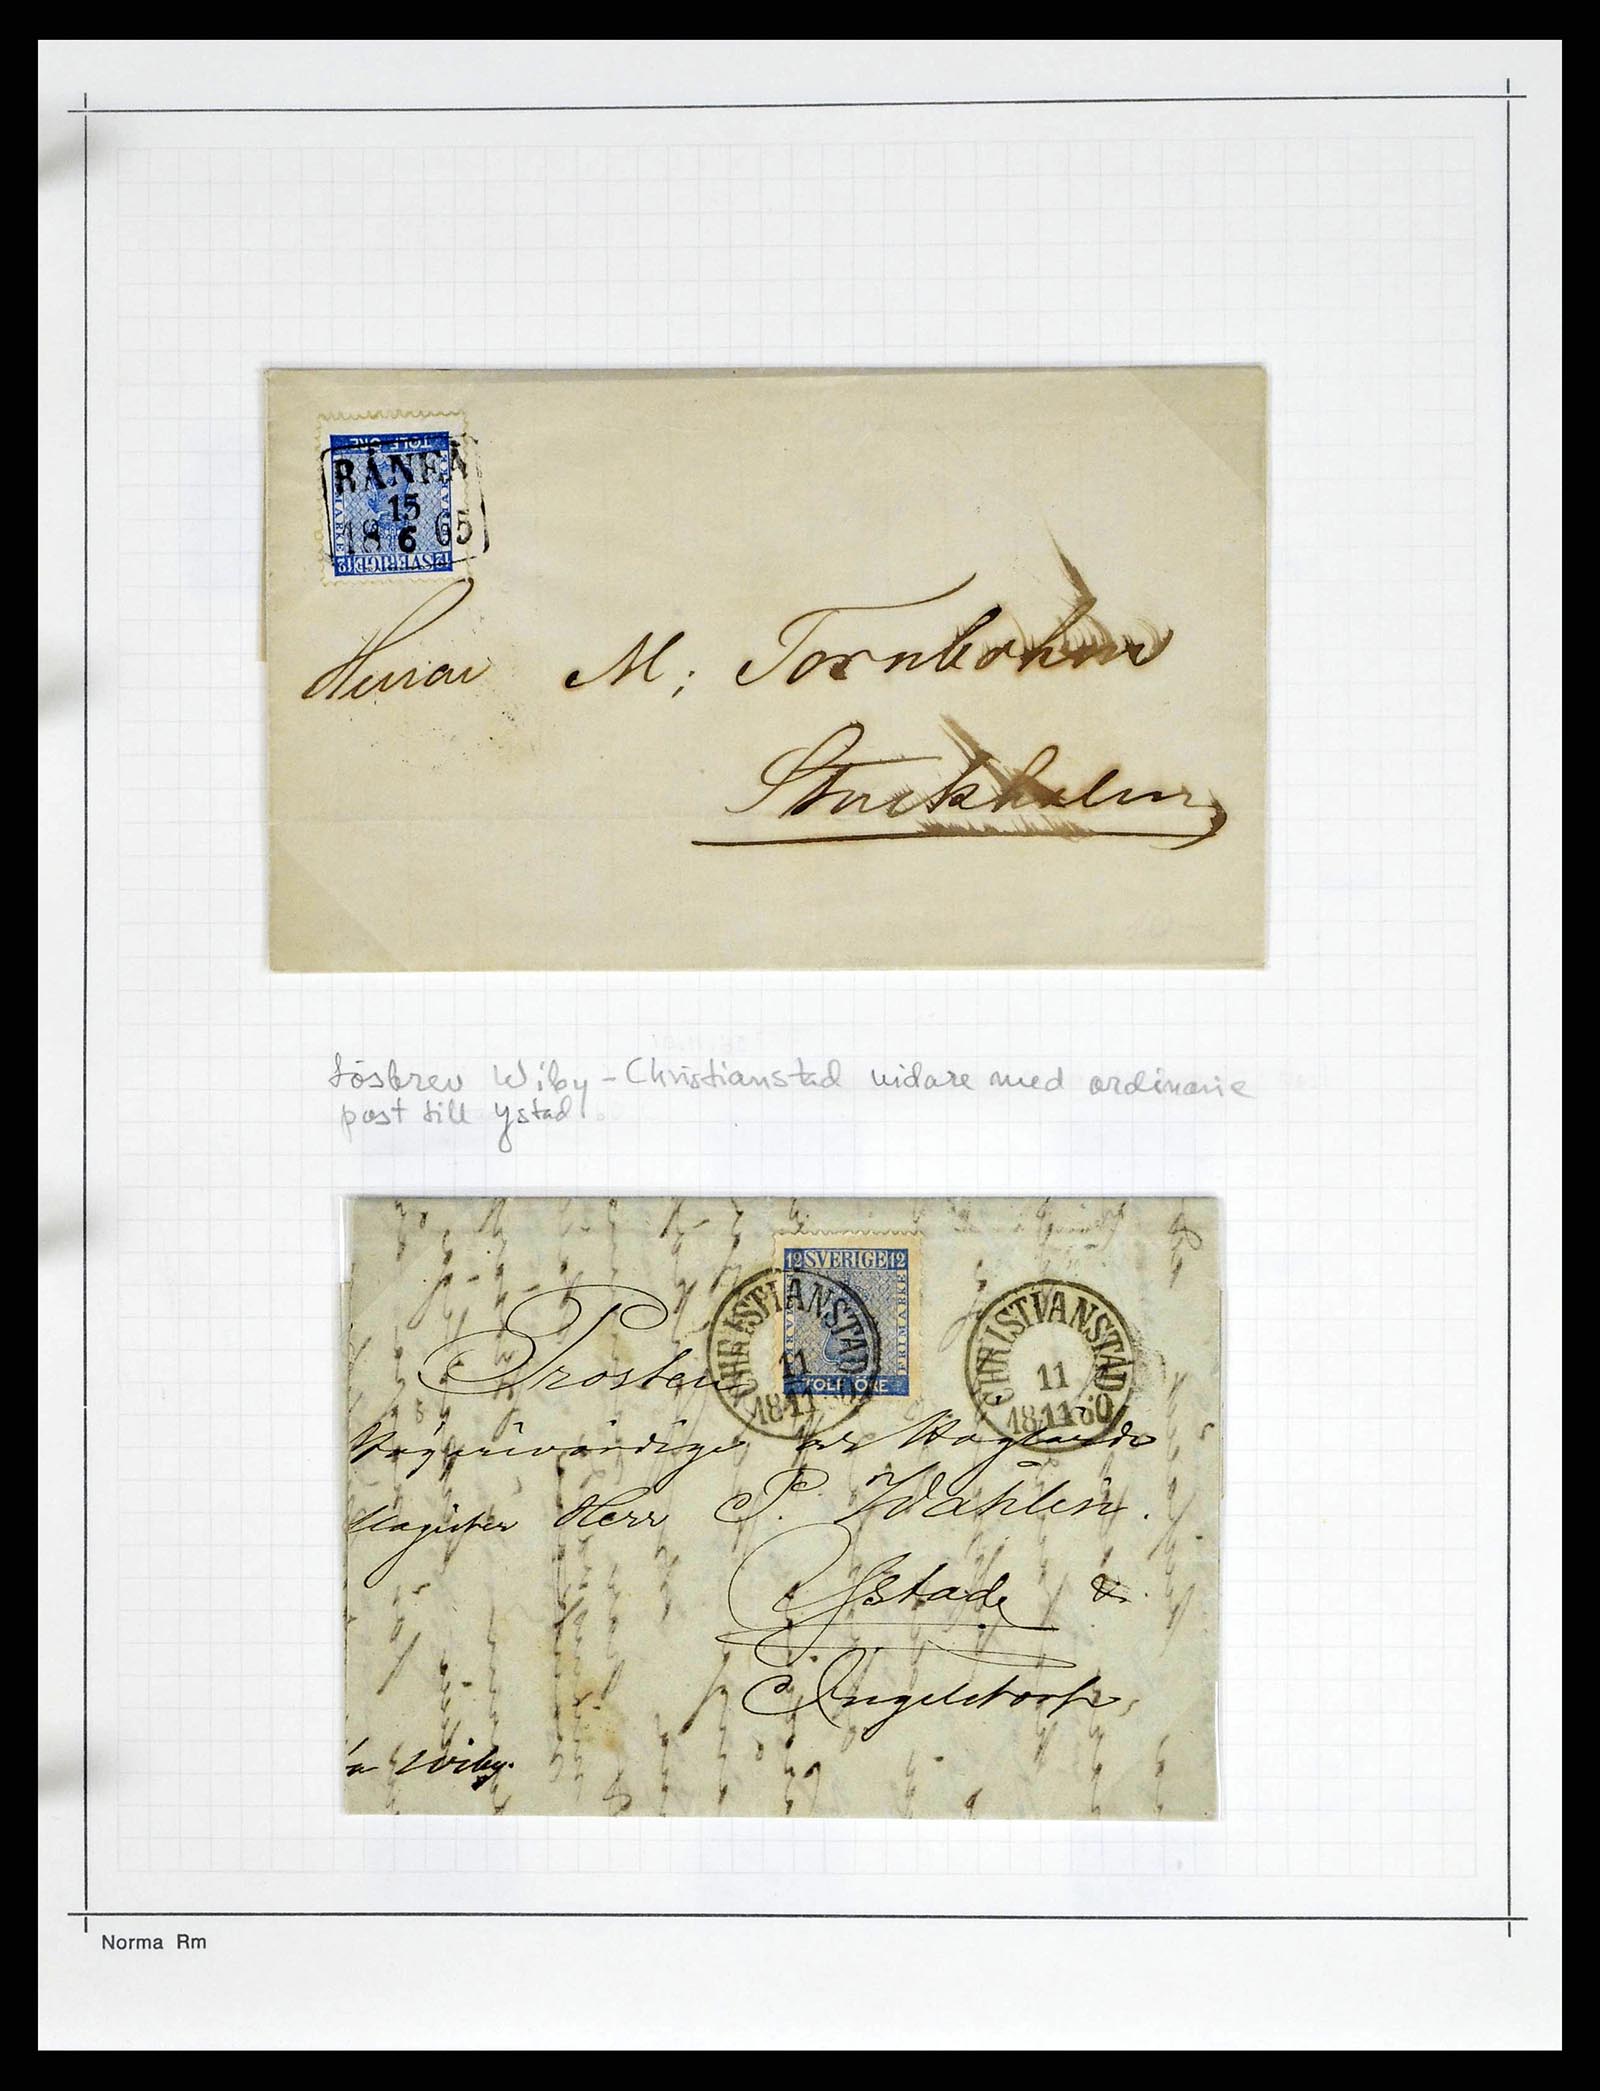 TOLF ÖRE
RÅNEÅ
15
18 6 65
12 SVERIGE 12
Herrar M; Tornbohm
Stockholm
Lösbrev Wiby - Christianstad vidare med ordinarie
post till Ystad.
12 SVERIGE 12
FRIMÄRKE
TOLF ÖRE
CHRISTIANSTAD
11
18 11 60
CHRISTIANSTAD
11
18 11 60
Prosten
Högärevördige
Magister Herr P. Wåhlin.
Ystad &
Ingelstorp,
Wiby.
Norma Rm